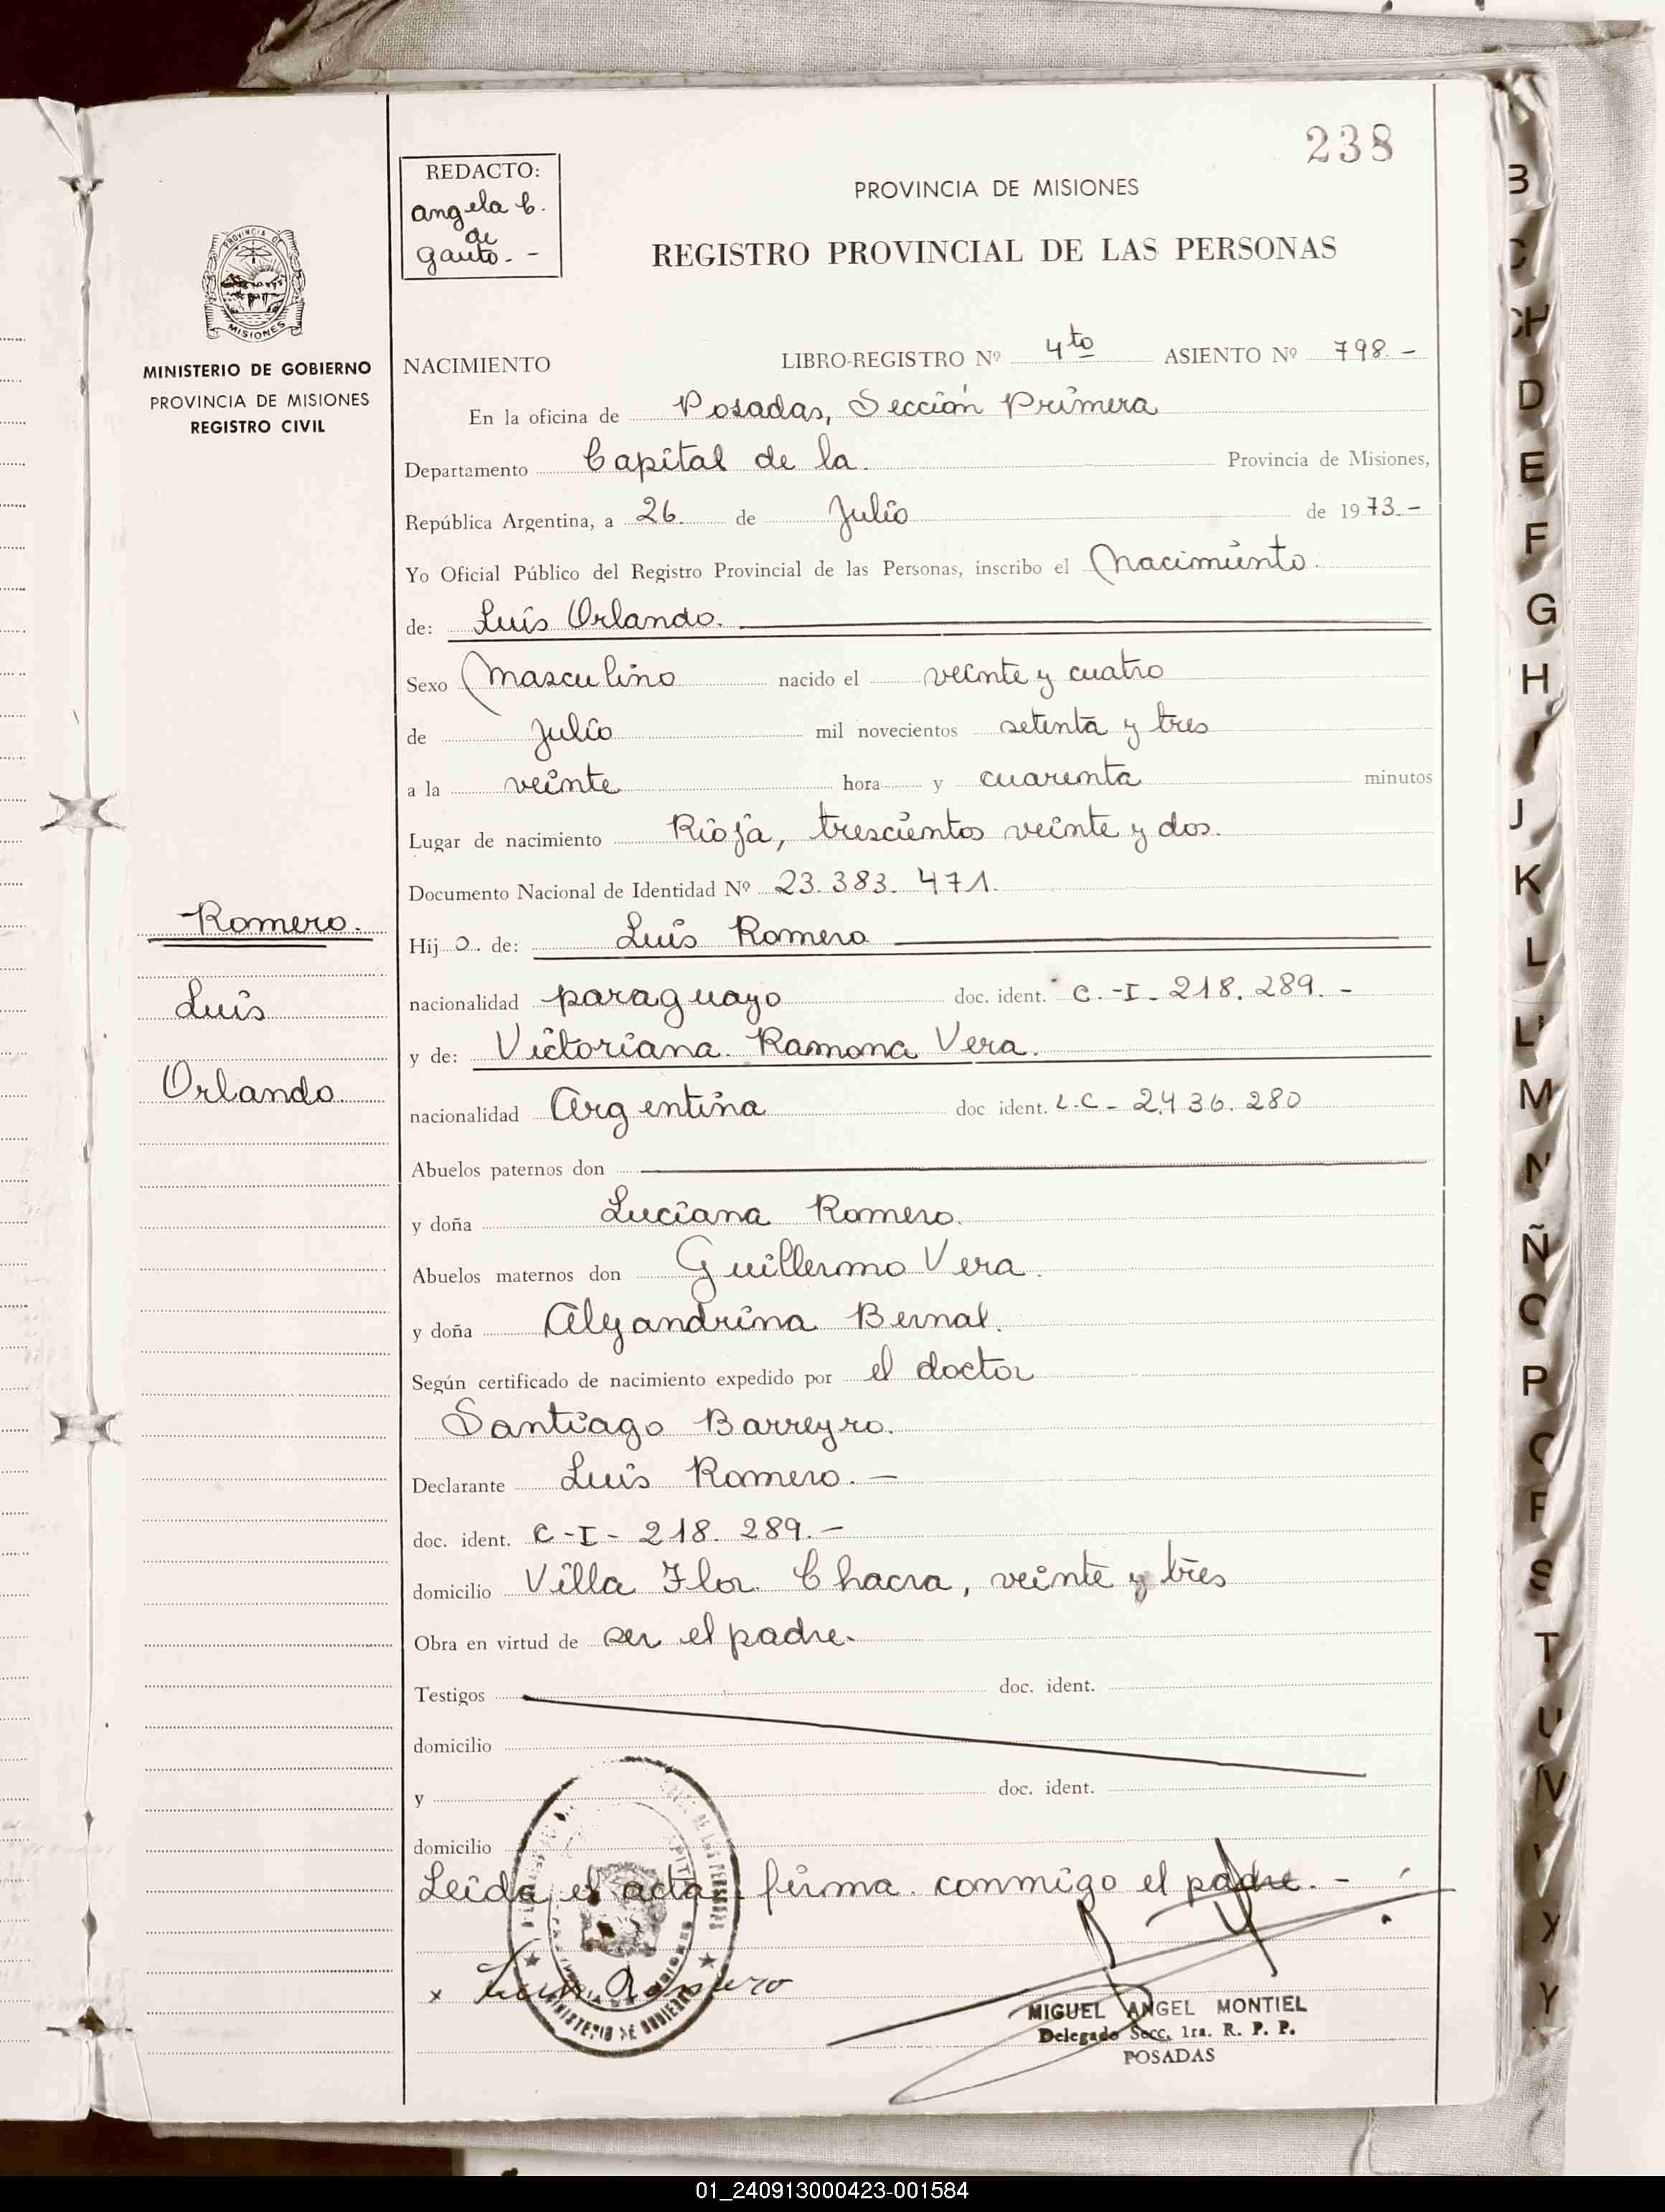 238
REDACTO:
Angela C.
de
Gauto. -
PROVINCIA DE MISIONES
REGISTRO PROVINCIAL DE LAS PERSONAS
MISIONES
MINISTERIO DE GOBIERNO
PROVINCIA DE MISIONES
REGISTRO CIVIL
NACIMIENTO LIBRO-REGISTRO Nº 4to ASIENTO Nº 798.-
En la oficina de Posadas, Sección Primera
Departamento Capital de la. Provincia de Misiones,
República Argentina, a 26. de Julio de 1973.-
Yo Oficial Público del Registro Provincial de las Personas, inscribo el Nacimiento.
de: Luis Orlando.
Sexo Masculino nacido el veinte y cuatro
de Julio mil novecientos setenta y tres
a la veinte hora y cuarenta minutos
Lugar de nacimiento Rioja, trescientos veinte y dos.
Documento Nacional de Identidad Nº 23.383.471.
Romero.
Luis
Orlando.
Hijo de: Luis Romero
nacionalidad paraguayo doc. ident. C.-I-218.289.-
y de: Victoriana Ramona Vera.
nacionalidad Argentina doc ident. L.C-2.436.280
Abuelos paternos don
y doña Luciana Romero.
Abuelos maternos don Guillermo Vera.
y doña Alejandrina Bernal.
Según certificado de nacimiento expedido por el doctor
Santiago Barreyro.
Declarante Luis Romero.-
doc. ident. C-I-218.289.-
domicilio Villa Flor Chacra, veinte y tres
Obra en virtud de ser el padre.
Testigos doc. ident.
domicilio
y doc. ident.
domicilio
Leída el acta firma conmigo el padre.-
x Luis Romero
MIGUEL ANGEL MONTIEL
Delegado Secc. 1ra. R. P. P.
POSADAS
B
C
CH
D
E
F
G
H
I
J
K
L
LL
M
N
Ñ
O
P
Q
R
S
T
U
V
X
Y
01_240913000423-001584